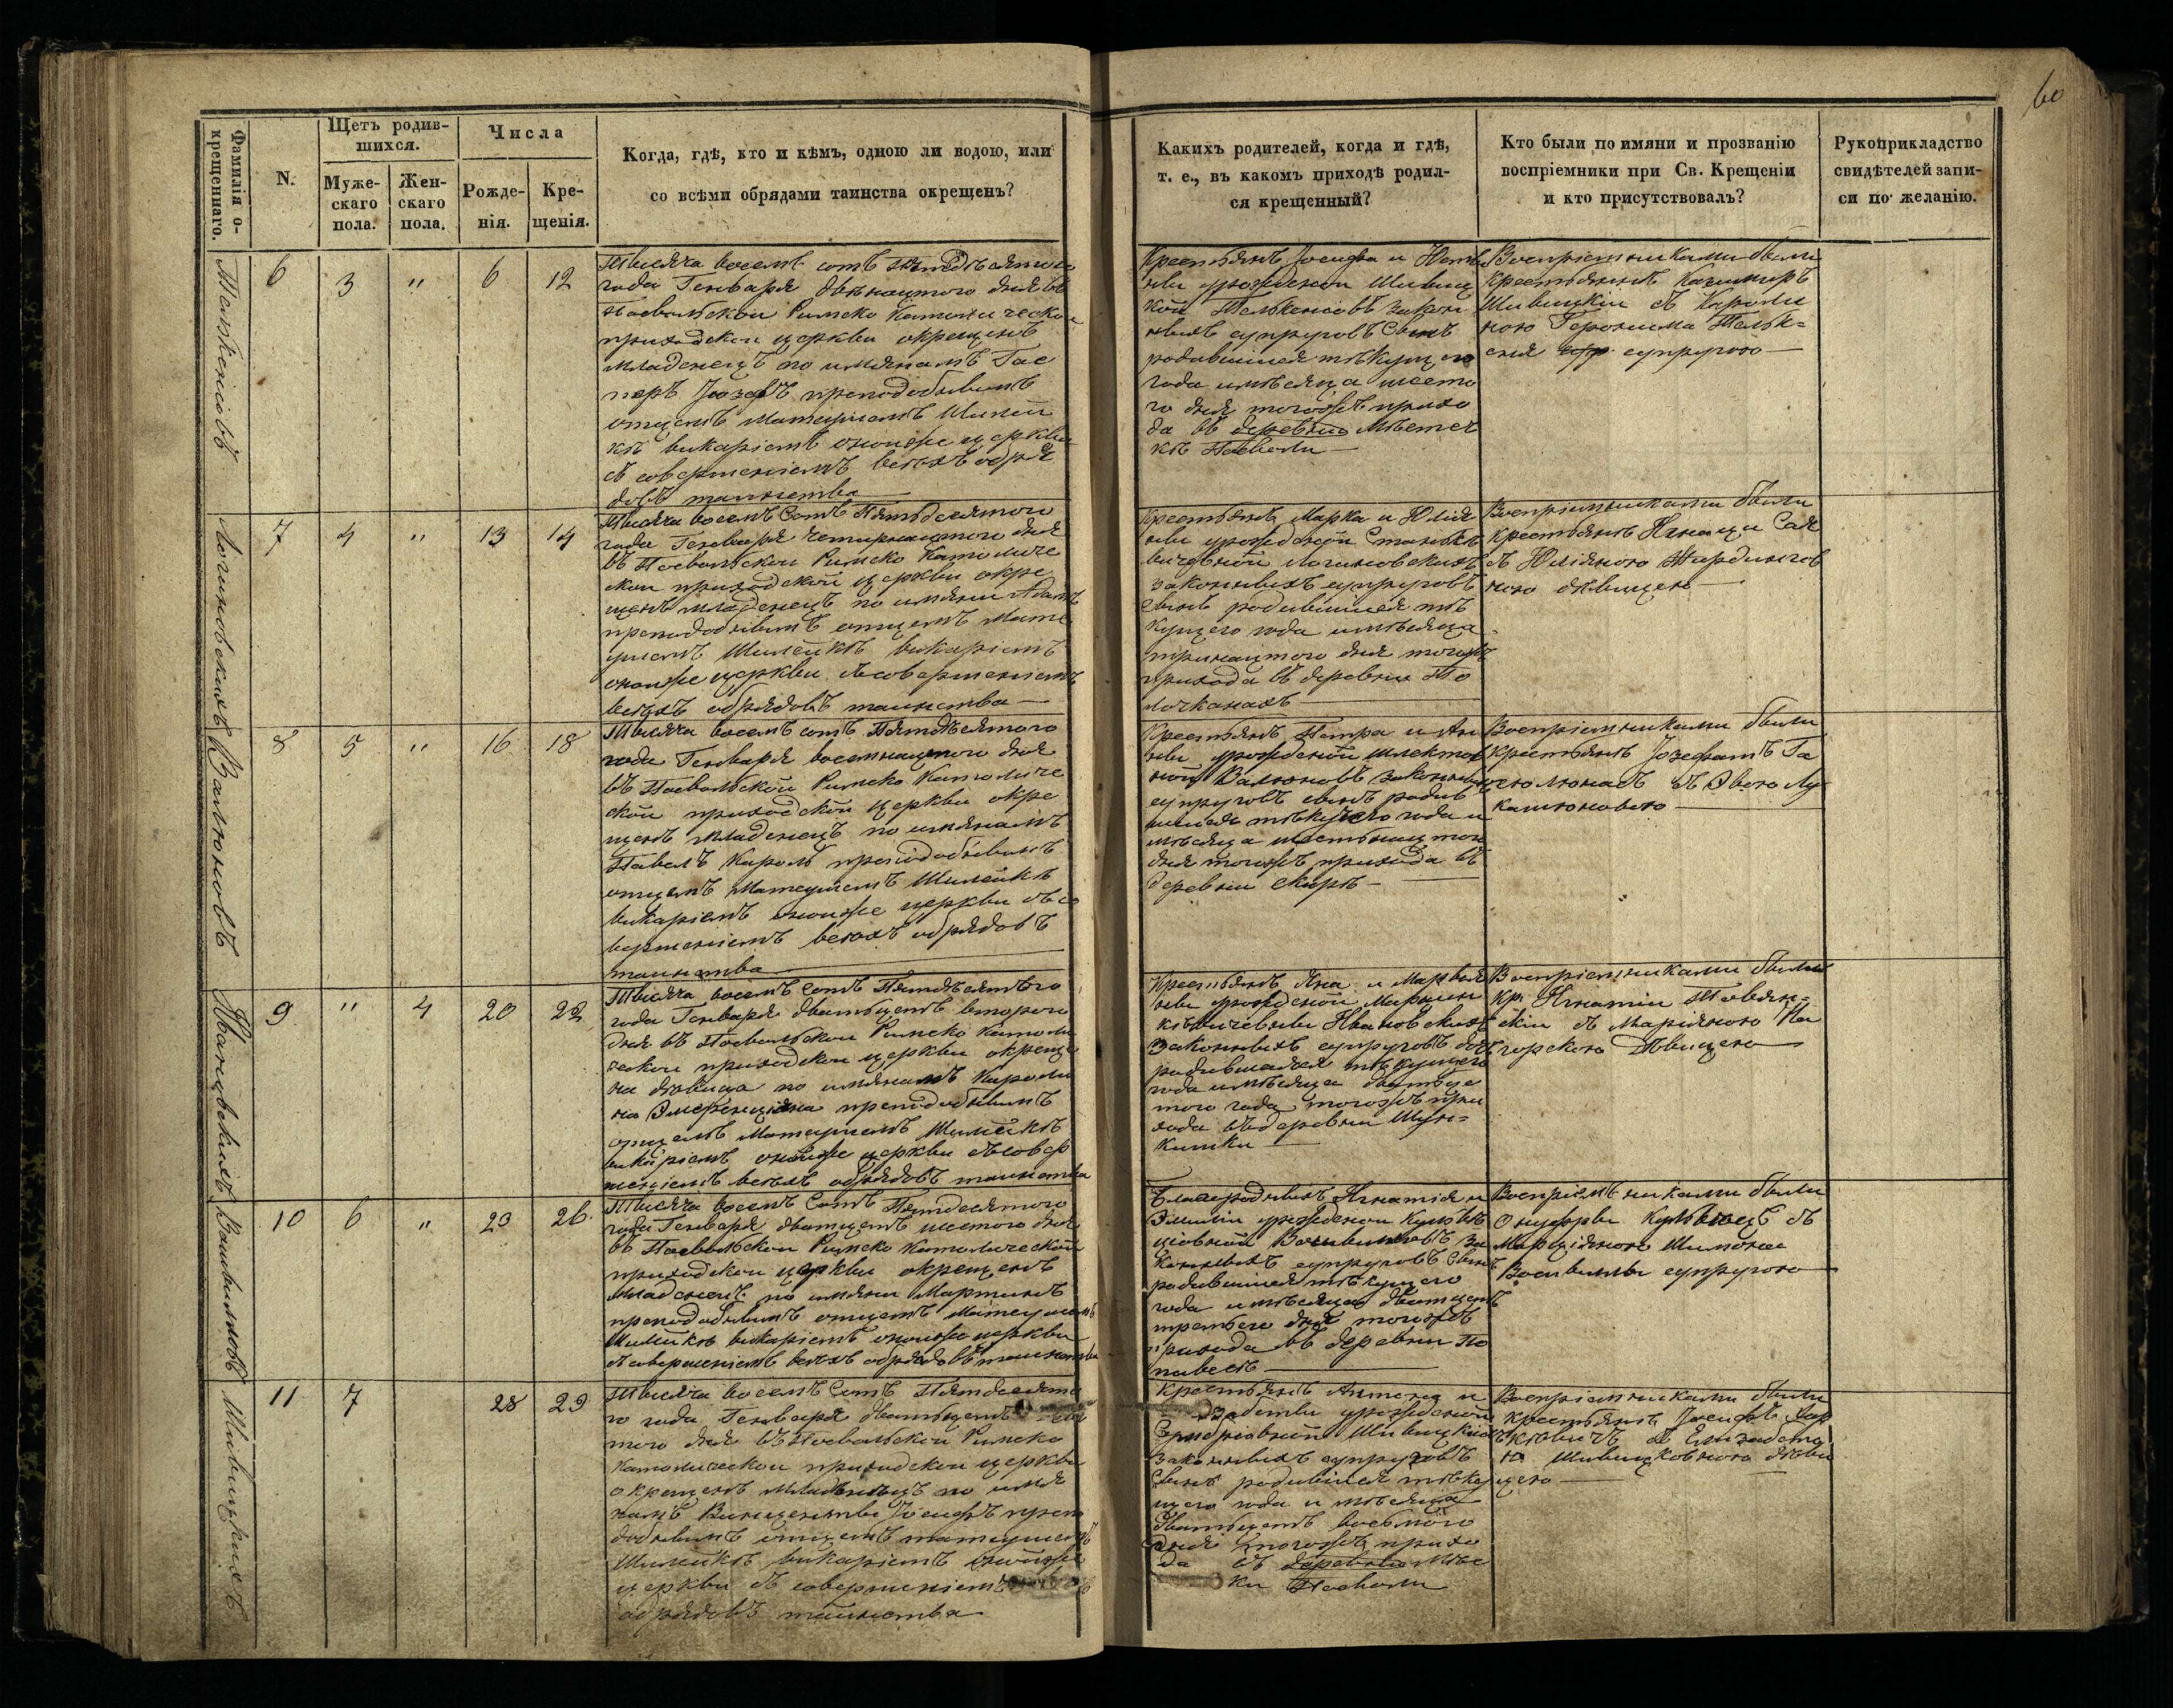 60
Фамилія о-
крещеннаго.
N.
Щетъ родив-
шихся.
Муже-
скаго
пола.
Жен-
скаго
пола.
Числа
Рожде-
нія.
Кре-
щенія.
Когда, гдѣ, кто и кѣмъ, одною ли водою, или
со всѣми обрядами таинства окрещенъ?
Какихъ родителей, когда и гдѣ,
т. е., въ какомъ приходѣ родил-
ся крещенный?
Кто были по имяни и прозванію
воспріемники при Св. Крещеніи
и кто присутствовалъ?
Рукоприкладство
свидѣтелей запи-
си по желанію.
6
3
"
6
12
Тысяча восемъ сотъ пятдесятого
года Генваря двѣнацтого дня въ
Посвольской Римско Католической
приходской церкви окрещенъ
младенецъ по имянамъ Гас
перъ Іозефъ преподобнымъ
отцемъ Матеушемъ Шилей
кѣ викаріемъ оной же церкви
съ совершеніемъ всѣхъ обря
довъ таинства
Крестьянъ Іосифа и
ны урожденой Шивиц
кой законныхъ супруговъ сынъ
родившійся тѣкущего
года и мѣсяца шесто
го дня тогожъ прихо
да въ деревни Мѣстеч
кѣ Посволи
Воспріемниками были
крестьянинъ Казимиръ
Шивицкій съ Кароли
ною Геронима Тельк=
супругою
7
4
"
13
14
Тысяча восемъ Сотъ Пятьдесятого
года Генваря четирнацтого дня
въ Посвольской Римско Католиче
ской приходской церкви окре
щенъ младенецъ по имяни Адамъ
преподобнымъ отцемъ Мате
ушемъ Шилейкѣ викаріемъ
оной же церкви съ совершеніемъ
всѣхъ обрядовъ таинства
Крестьянъ Марка и Юлія
ны урожденой Станкѣ
вичевной Логиновскихъ
законныхъ супруговъ
сынъ родившійся тѣ
кущего года и мѣсяца
тринацтого дня тогожъ
прихода въ деревни То
лочканахъ
Воспріемниками были
крестьянъ Игнаци
съ Юліяною
ною дѣвицею
8
5
"
16
18
Тысяча восемъ сотъ Пятдѣсятого
года Генваря восемнацтого дня
въ Посвольской Римско Католиче
ской приходской церкви окре
щенъ младенецъ по имянамъ
Павелъ Кароль преподобнымъ
отцемъ Матеушемъ Шилейкѣ
викаріемъ оной же церкви съ со
вершеніемъ всѣхъ обрядовъ
таинства
Крестьянъ Петра и Ан
ны урожденой
Валюновъ законныхъ
супруговъ сынъ родив
шійся тѣкущего года и
мѣсяца шестнацтого
дня тогожъ прихода въ
деревни
Воспріемниками были
крестьянъ Іозефатъ
съ Эвою Лу
кашюновою
9
"
4
20
22
Тысяча восемъ Сотъ Пятдѣсятѣго
года Генваря двадцать второго
дня въ Посвольской Римско Католи
ческой приходской церкви окреще
на дѣвица по имянамъ Кароли
на Эмеренціяна преподобнымъ
отцемъ Матеушемъ Шилейкѣ
викаріемъ оной же церкви съ совер
шеніемъ всѣхъ обрядовъ таинства
Крестьянъ Яна и
ны урожденой Марцин
кѣвичевны Ивановскихъ
законныхъ супруговъ дочь
родившаяся тѣкущего
года и мѣсяца двадце
того года тогожъ при
хода въ деревни Шун=
кишки
Воспріемниками были
Кр. Игнатій Товян=
скій съ Маріяною На
горскою дѣвицею
10
6
"
23
26
Тысяча восемъ Сотъ Пятдесятого
года Генваря двадцать шестого дня
въ Посвольской Римско Католической
приходской церкви окрещенъ
Младенецъ по имяни Мартинъ
преподобнымъ отцемъ Матеушемъ
Шилейкѣ викаріемъ оной же церкви
съ совершеніемъ всѣхъ обрядовъ таинства
Благородныхъ Игнатія и
Эмиліи урожденой
за
конныхъ супруговъ сынъ
родившійся тѣкущего
года и мѣсяца двадцать
третьего дня тогожъ
прихода въ деревни По
пивесѣ
Воспріемниками были
Онуфры съ
Марціяною Шимона
супругою
11
7
28
29
Тысяча восемъ Сотъ Пятдесято
го года Генваря двадцать
того дня въ Посвольской Римско
Католической приходской церкви
окрещенъ младенецъ по имя
намъ Винценты Іосифъ препо
добнымъ отцемъ матеушемъ
Шилейкѣ викаріемъ оной же
церкви съ совершеніемъ
обрядовъ таинства
Крестьянъ Антона и
урожденой
Шивицкихъ
законныхъ супруговъ
сынъ родившійся тѣку
щего года и мѣсяца
двадцать восьмого
дня тогожъ прихо
да въ деревни Мѣс
ки Посволи
Воспріемниками были
крестьянъ Іосифъ
съ Елизавето
ю Шивицковною дѣви
цею
Логиновскихъ
Валюновъ
Ивановскихъ
Шивицкихъ